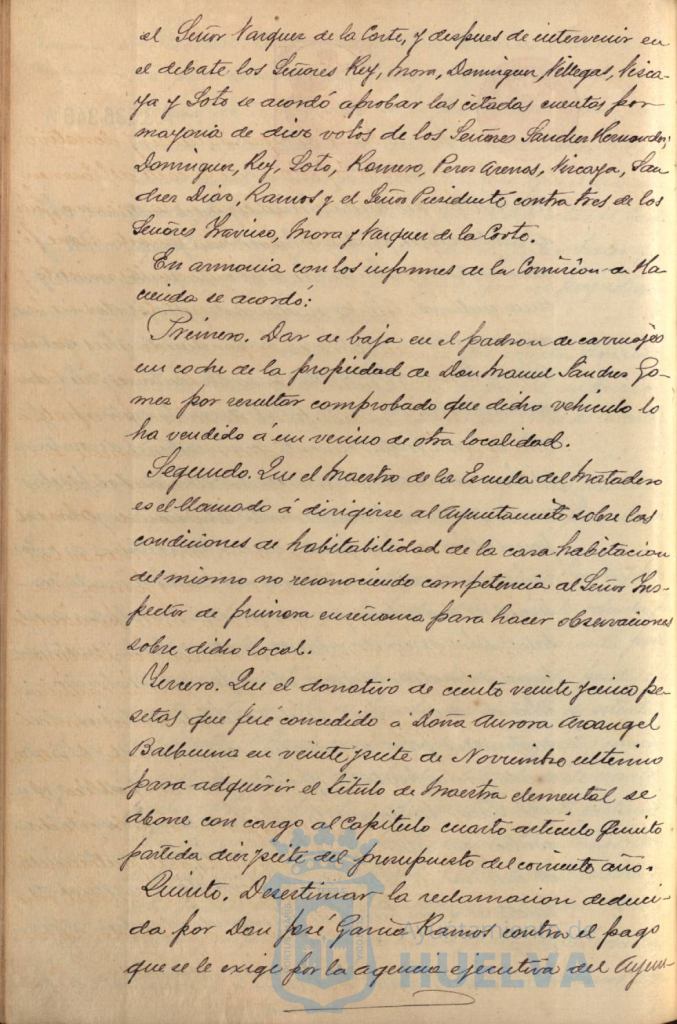 el Señor Vazquez de la Corte, y despues de intervenir en
el debate los Señores Rey, Mora, Dominguez, Villegas, Vizca-
ya y Soto se acordó aprobar las citadas cuentas por
mayoria de diez votos de los Señores Sanchez Hernandez,
Dominguez, Rey, Soto, Romero, Perez Arenas, Vizcaya, San-
chez Diaz, Ramos y el Señor Presidente contra tres de los
Señores Travieso, Mora y Vazquez de la Corte.
En armonia con los informes de la Comision de Ha-
cienda se acordó:
Primero. Dar de baja en el padron de carruajes
un coche de la propiedad de Don Manuel Sanchez Go-
mez por resultar comprobado que dicho vehiculo lo
ha vendido á un vecino de otra localidad.
Segundo. Que el Maestro de la Escuela del Matadero
es el llamado á dirigirse al Ayuntamiento sobre las
condiciones de habitabilidad de la casa habitacion
del mismo no reconociendo competencia al Señor Ins-
pector de primera enseñanza para hacer observaciones
sobre dicho local.
Tercero. Que el donativo de ciento veinte y cinco pe-
setas que fué concedido á Doña Aurora Arcangel
Balbuena en veinte y siete de Noviembre ultimo
para adquirir el titulo de Maestra elemental se
abone con cargo al Capitulo cuarto articulo Quinto
partida diez y siete del presupuesto del corriente año.
Quinto. Desestimar la reclamacion deduci-
da por Don José Garcia Ramos contra el pago
que se le exige por la agencia ejecutiva del Ayun-
Ayuntamiento de
HUELVA